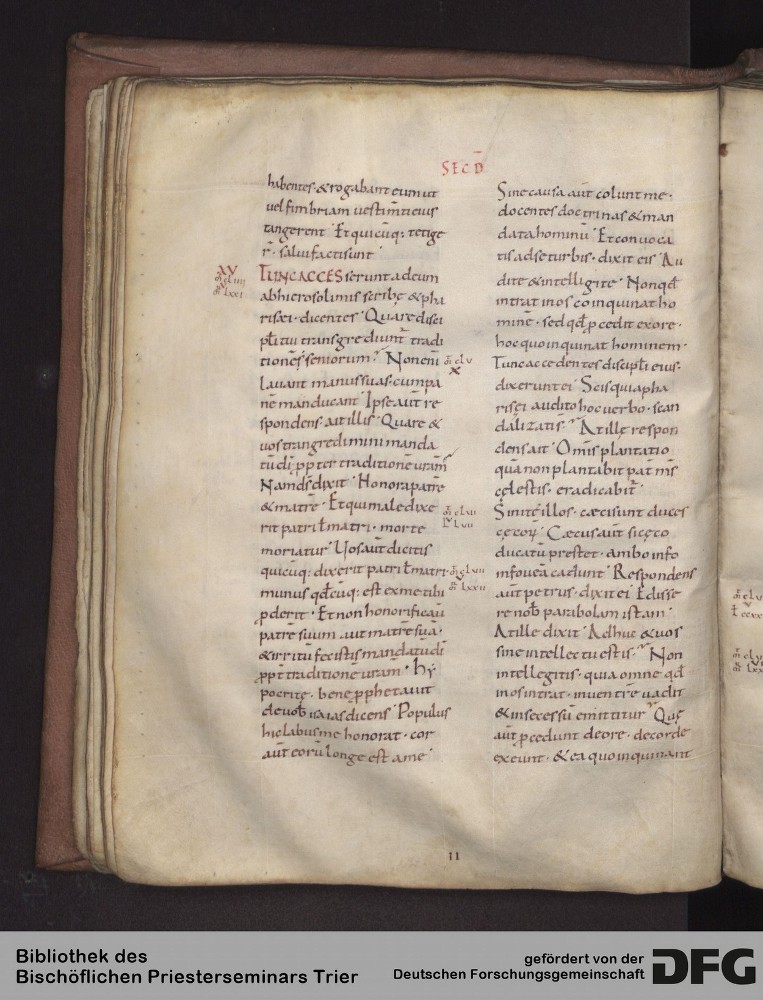 SECD̄
habentes · & rogabant eum ut
uel fimbriam uestim̄ti eius
tangerent · Et quicūq; tetige
r̄ · salui facti sunt ·
TUNC ACCESserunt ad eum
ab hierosolimis scribę & pha
risęi · dicentes · Quare disci
pl̄i tui transgrediunt᷑ tradi
tiones seniorum · Non enī
lauant manus suas · cum pa
nē manducant · Ipse aūt re
spondens · ait illis · Quare &
uos trangredimini manda
tū dī p̄pter traditionē uram̄
Nam d̄s dixit · Honora patrē
& matrē · Et qui maledixe
rit patri ł matri · morte
moriatur · Uos aūt dicitis
quicūq; dixerit patri ł matri ·
munus qđcūq; est ex me tibi
ꝓderit · Et non honorificau̅
patrē suum · aut matrē suā ·
& irritū fecistis mandatū dī
p̄pt̄ traditionē uram̄ · Hy
pocritę · bene ꝓphetauit
de uob̄ isaias dicens · Populus
hic labiis me honorat · cor
aūt eorū longe est a me ·
Sine causa aūt colunt me ·
docentes doctrinas & man
data hominū · Et conuoca
tis ad se turbis · dixit eis · Au
dite & intelligite · Non qđ
intrat in os coinquinat ho
minē · sed qđ ꝓcedit ex ore ·
hoc quoinquinat hominem ·
Tunc accedentes discipl̄i eius ·
dixerunt ei · Scis quia pha
risei audito hoc uerbo · scan
dalizati s̄ · At ille respon
dens ait · Omīs plantatio
quā non plantabit pat̄ m̄s
cęlestis · eradicabit᷑ ·
Sinite illos · cæci sunt duces
cęcoꝝ · Cæcus aūt si cęco
ducatū prestet · ambo in fo
in foueā cadunt · Respondens
aūt petrus · dixit ei · Edisse
re nob̄ parabolam istam ·
At ille dixit · Adhuc & uos
sine intellectu estis · Non
intellegitis · quia omne qđ
in os intrat · in uentrē uadit
& in secessū emittitur · Quę
aūt ꝓcedunt de ore · de corde
exeunt · & ea quoinquinant
11
Bibliothek des
Bischöflichen Priesterseminars Trier
gefördert von der
Deutschen Forschungsgemeinschaft
DFG